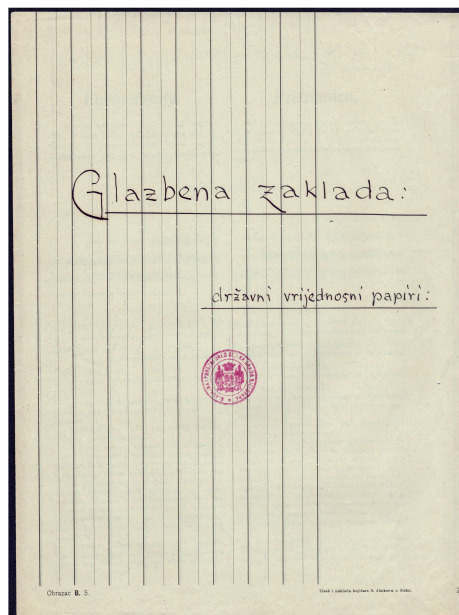 Glazbena zaklada:
državni vrijednosni papiri:
Obrazac B. 5.
Tisak i naklada knjižare